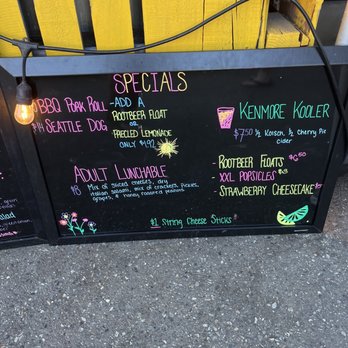 SPECIALS
BBQ Pork Roll
$14 Seattle Dog
-ADD A
ROOTBEER FLOAT
OR
PRICKLED LEMONADE
ONLY
Kenmore Kooler
$7.50 ½ Kaisen, ½ Cherry Pie
cider
Adult Lunchable
$8 Mix of sliced cheeses, dry
italian salami, mix of crackers, pickles,
grapes, & honey roasted peanuts
- Rootbeer Floats $6.50
- XXL Popsicles
- Strawberry Cheesecake
$1 String Cheese Sticks!